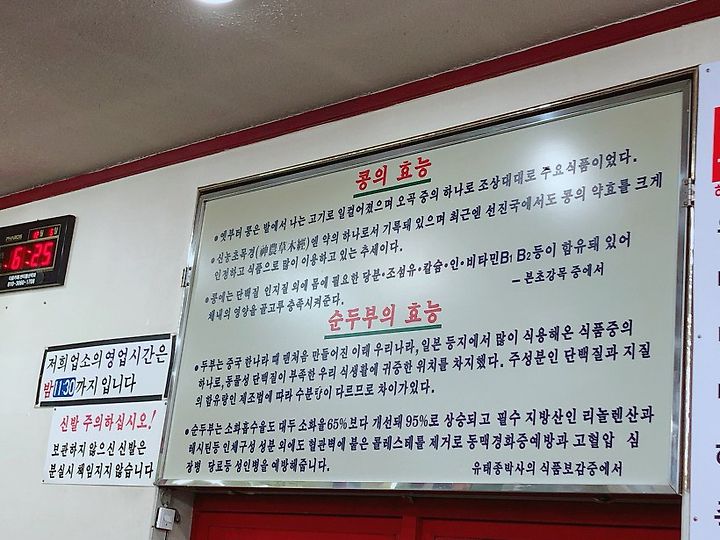 콩의 효능
• 옛부터 콩은 밭에서 나는 고기로 일컬어졌으며 오곡 중의 하나로 조상대대로 주요식품이었다.
• 신농초목경(神農草木經)엔 약의 하나로서 기록돼 있으며 최근엔 선진국에서도 콩의 약효를 크게
인정하고 식품으로 많이 이용하고 있는 추세이다.
• 콩에는 단백질 인지질 외에 몸에 필요한 당분·조섬유·칼슘·인·비타민B1 B2등이 함유돼 있어
체내의 영양을 골고루 충족시켜준다.
– 본초강목 중에서
순두부의 효능
• 두부는 중국 한나라 때 맨처음 만들어진 이래 우리나라, 일본 등지에서 많이 식용해온 식품중의
하나로, 동물성 단백질이 부족한 우리 식생활에 귀중한 위치를 차지했다. 주성분인 단백질과 지질
의 범유량인 제조법에 따라 수분탕이 다르므로 차이가있다.
• 순두부는 소화흡수율도 대두 소화율65%보다 개선돼 95%로 상승되고 필수 지방산인 리놀렌산과
테시틴등 인체구성 성분 외에도 혈관벽에 붙은 콜레스테롤 제거로 동맥경화증예방과 고혈압 심
장병 당료등 성인병을 예방해줍니다.
유태종박사의 식품보감중에서
6:25
저희업소의 영업시간은
밤11:30까지 입니다
신발 주의하십시오!
보관하지 않으신 신발은
분실시 책임지지 않습니다